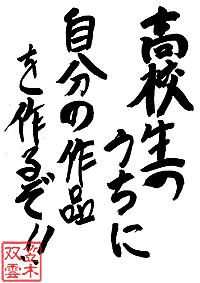 高校生の
うちに
自分の作品
を作るぞ!!
笠木
双雲